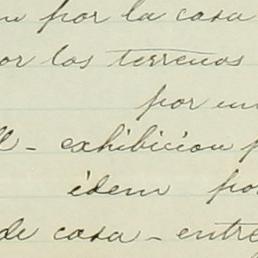 por la casa
or los terrenos
por un
ll - exhibicion p
idem po
de casa - entre